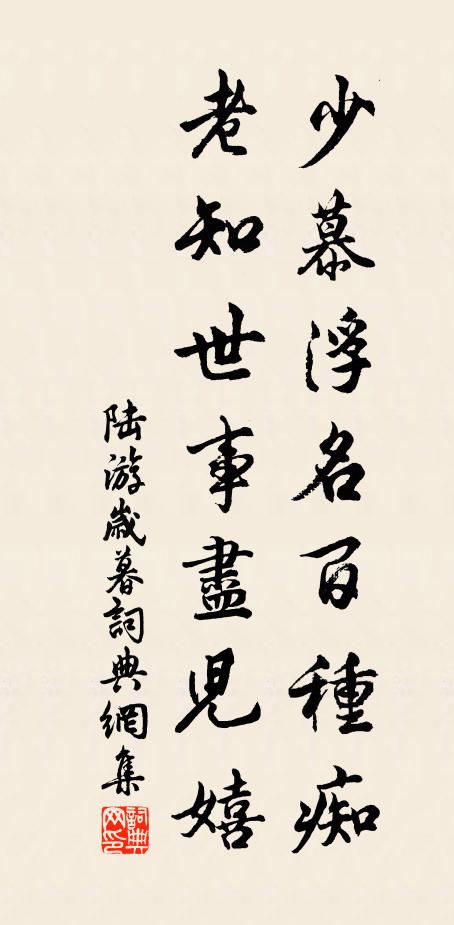 少慕浮名百種痴
老知世事盡兒嬉
陸游歲暮詞典網集
詞典網印